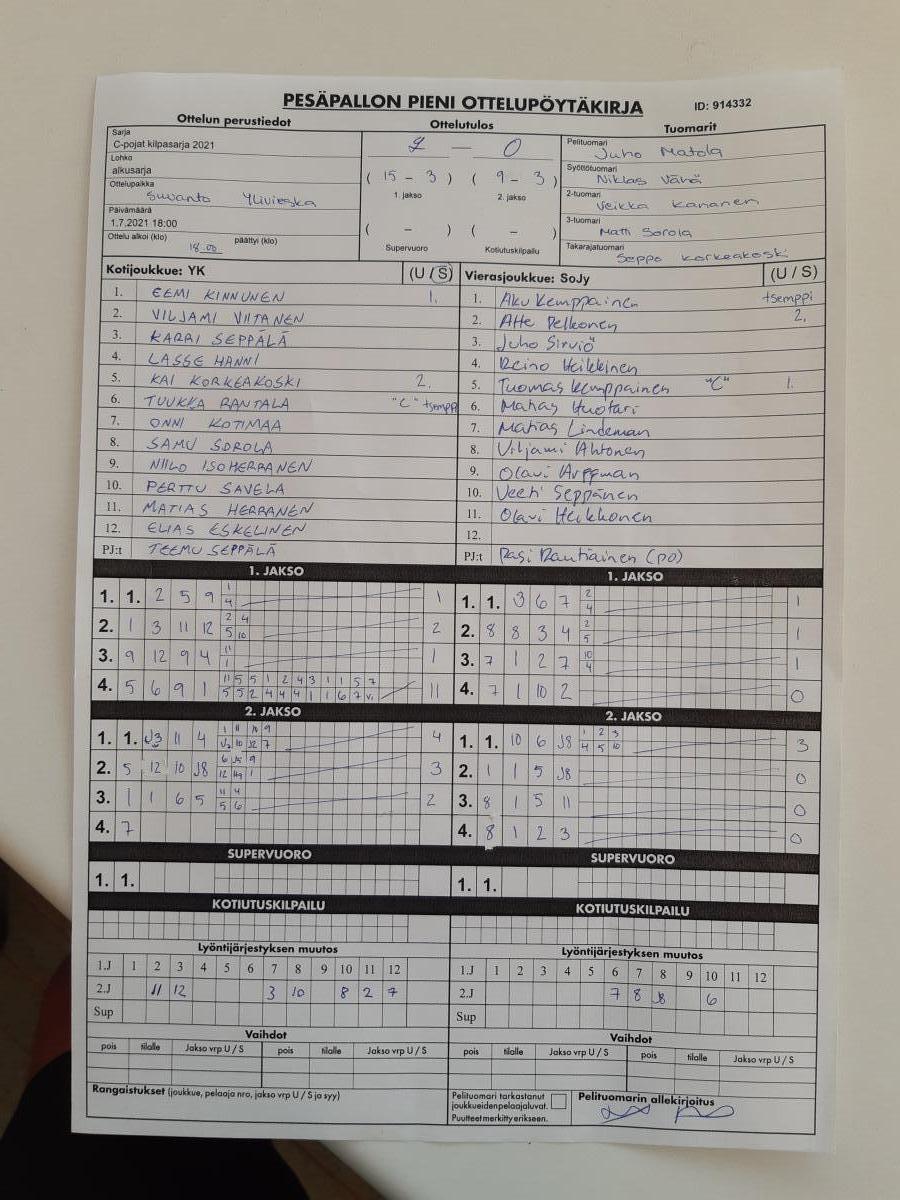 PESÄPALLON PIENI OTTELUPÖYTÄKIRJA
ID: 914332
Ottelun perustiedot
Sarja
C-pojat kilpasarja 2021
Lohko
alkusarja
Ottelupaikka
Suvanto Ylivieska
Päivämäärä
1.7.2021 18:00
Ottelu alkoi (klo) 18.00 päättyi (klo)
Ottelutulos
2 — 0
( 15 - 3 ) ( 9 - 3 )
1. jakso 2. jakso
( - ) ( - )
Supervuoro Kotiutuskilpailu
Tuomarit
Pelituomari
Juho Matola
Syöttötuomari
Niklas Vähä
2-tuomari
Veikka Kananen
3-tuomari
Matti Sorola
Takarajatuomari
Seppo Korkeakoski
Kotijoukkue: YK (U / S)
1. EEMI KINNUNEN 1.
2. VILJAMI VIITANEN
3. KARRI SEPPÄLÄ
4. LASSE HANNI
5. KAI KORKEAKOSKI 2.
6. TUUKKA RANTALA "C" tsemppi
7. ONNI KOTIMAA
8. SAMU SOROLA
9. NIILO ISOHERRANEN
10. PERTTU SAVELA
11. MATIAS HERRANEN
12. ELIAS ESKELINEN
PJ:t TEEMU SEPPÄLÄ
Vierasjoukkue: SoJy (U / S)
1. Aku Kemppainen tsemppi
2. Atte Pelkonen 2.
3. Juho Sirviö
4. Reino Heikkinen
5. Tuomas Kemppainen "C" 1.
6. Matias Huotari
7. Matias Lindeman
8. Viljami Ahtonen
9. Olavi Arffman
10. Veeti Seppänen
11. Olavi Heikkonen
12.
PJ:t Pasi Rautiainen (PO)
1. JAKSO
1. 1. 2 5 9 1 4 1
2. 1 3 11 12 2 4 5 10 2
3. 9 12 9 4 11 1 1
4. 5 6 9 1 11 5 5 1 2 4 3 1 1 5 7
5 5 2 4 4 4 1 1 6 7 V. 11
1. JAKSO
1. 1. 3 6 7 2 4 1
2. 8 8 3 4 2 5 1
3. 7 1 2 7 10 4 1
4. 7 1 10 2 0
2. JAKSO
1. 1. J3 11 4 4
2. 5 12 10 J8 3
3. 1 1 6 5 11 4 5 6 2
4. 7
2. JAKSO
1. 1. 10 6 J8 1 2 3 4 5 10 3
2. 1 1 5 J8 0
3. 8 1 5 11 0
4. 8 1 2 3 0
SUPERVUORO
1. 1.
SUPERVUORO
1. 1.
KOTIUTUSKILPAILU
KOTIUTUSKILPAILU
Lyöntijärjestyksen muutos
1.J 1 2 3 4 5 6 7 8 9 10 11 12
2.J 11 12 3 10 8 2 7
Sup
Lyöntijärjestyksen muutos
1.J 1 2 3 4 5 6 7 8 9 10 11 12
2.J 7 8 J8 6
Sup
Vaihdot
pois tilalle Jakso vrp U / S pois tilalle Jakso vrp U / S
Vaihdot
pois tilalle Jakso vrp U / S pois tilalle Jakso vrp U / S
Rangaistukset (joukkue, pelaaja nro, jakso vrp U / S ja syy)
Pelituomari tarkastanut
joukkueidenpelaajaluvat.
Puutteet merkitty erikseen.
Pelituomarin allekirjoitus